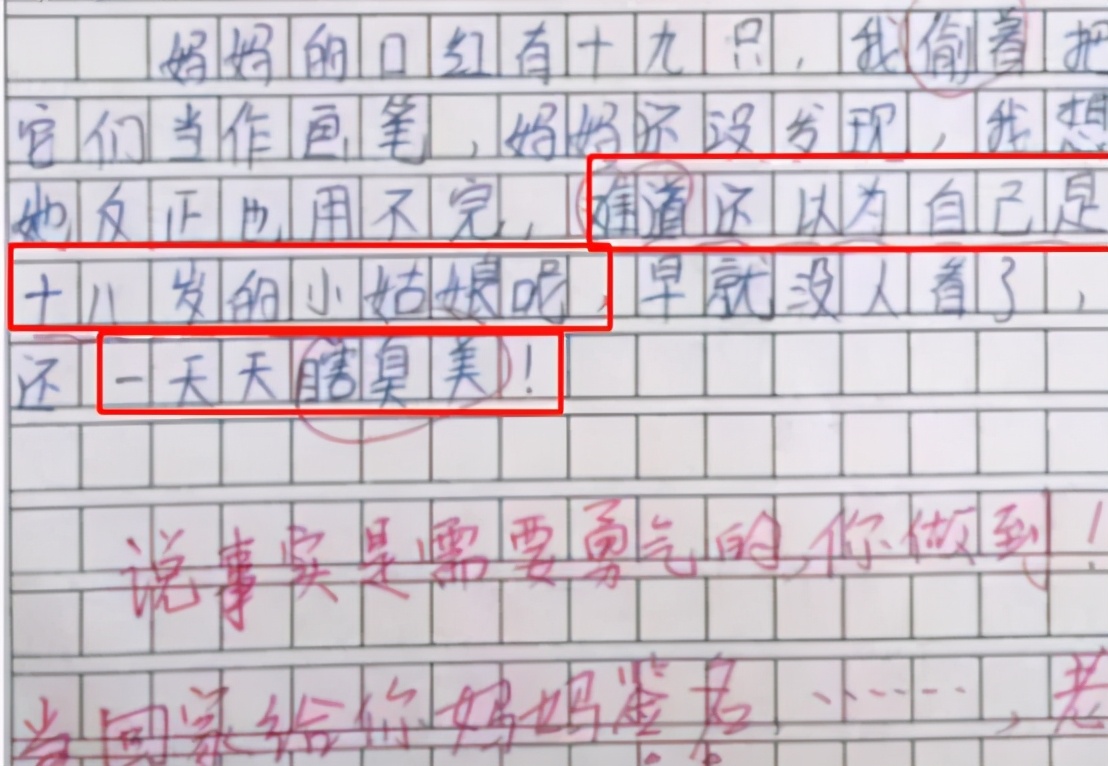 妈妈的口红有十九只，我偷着把
它们当作画笔，妈妈还没发现，我想
她反正也用不完，难道还以为自己是
十八岁的小姑娘呢，早就没人看了，
还一天天瞎臭美！
说事实是需要勇气的，你做到！
回家给你妈妈鉴名……，老